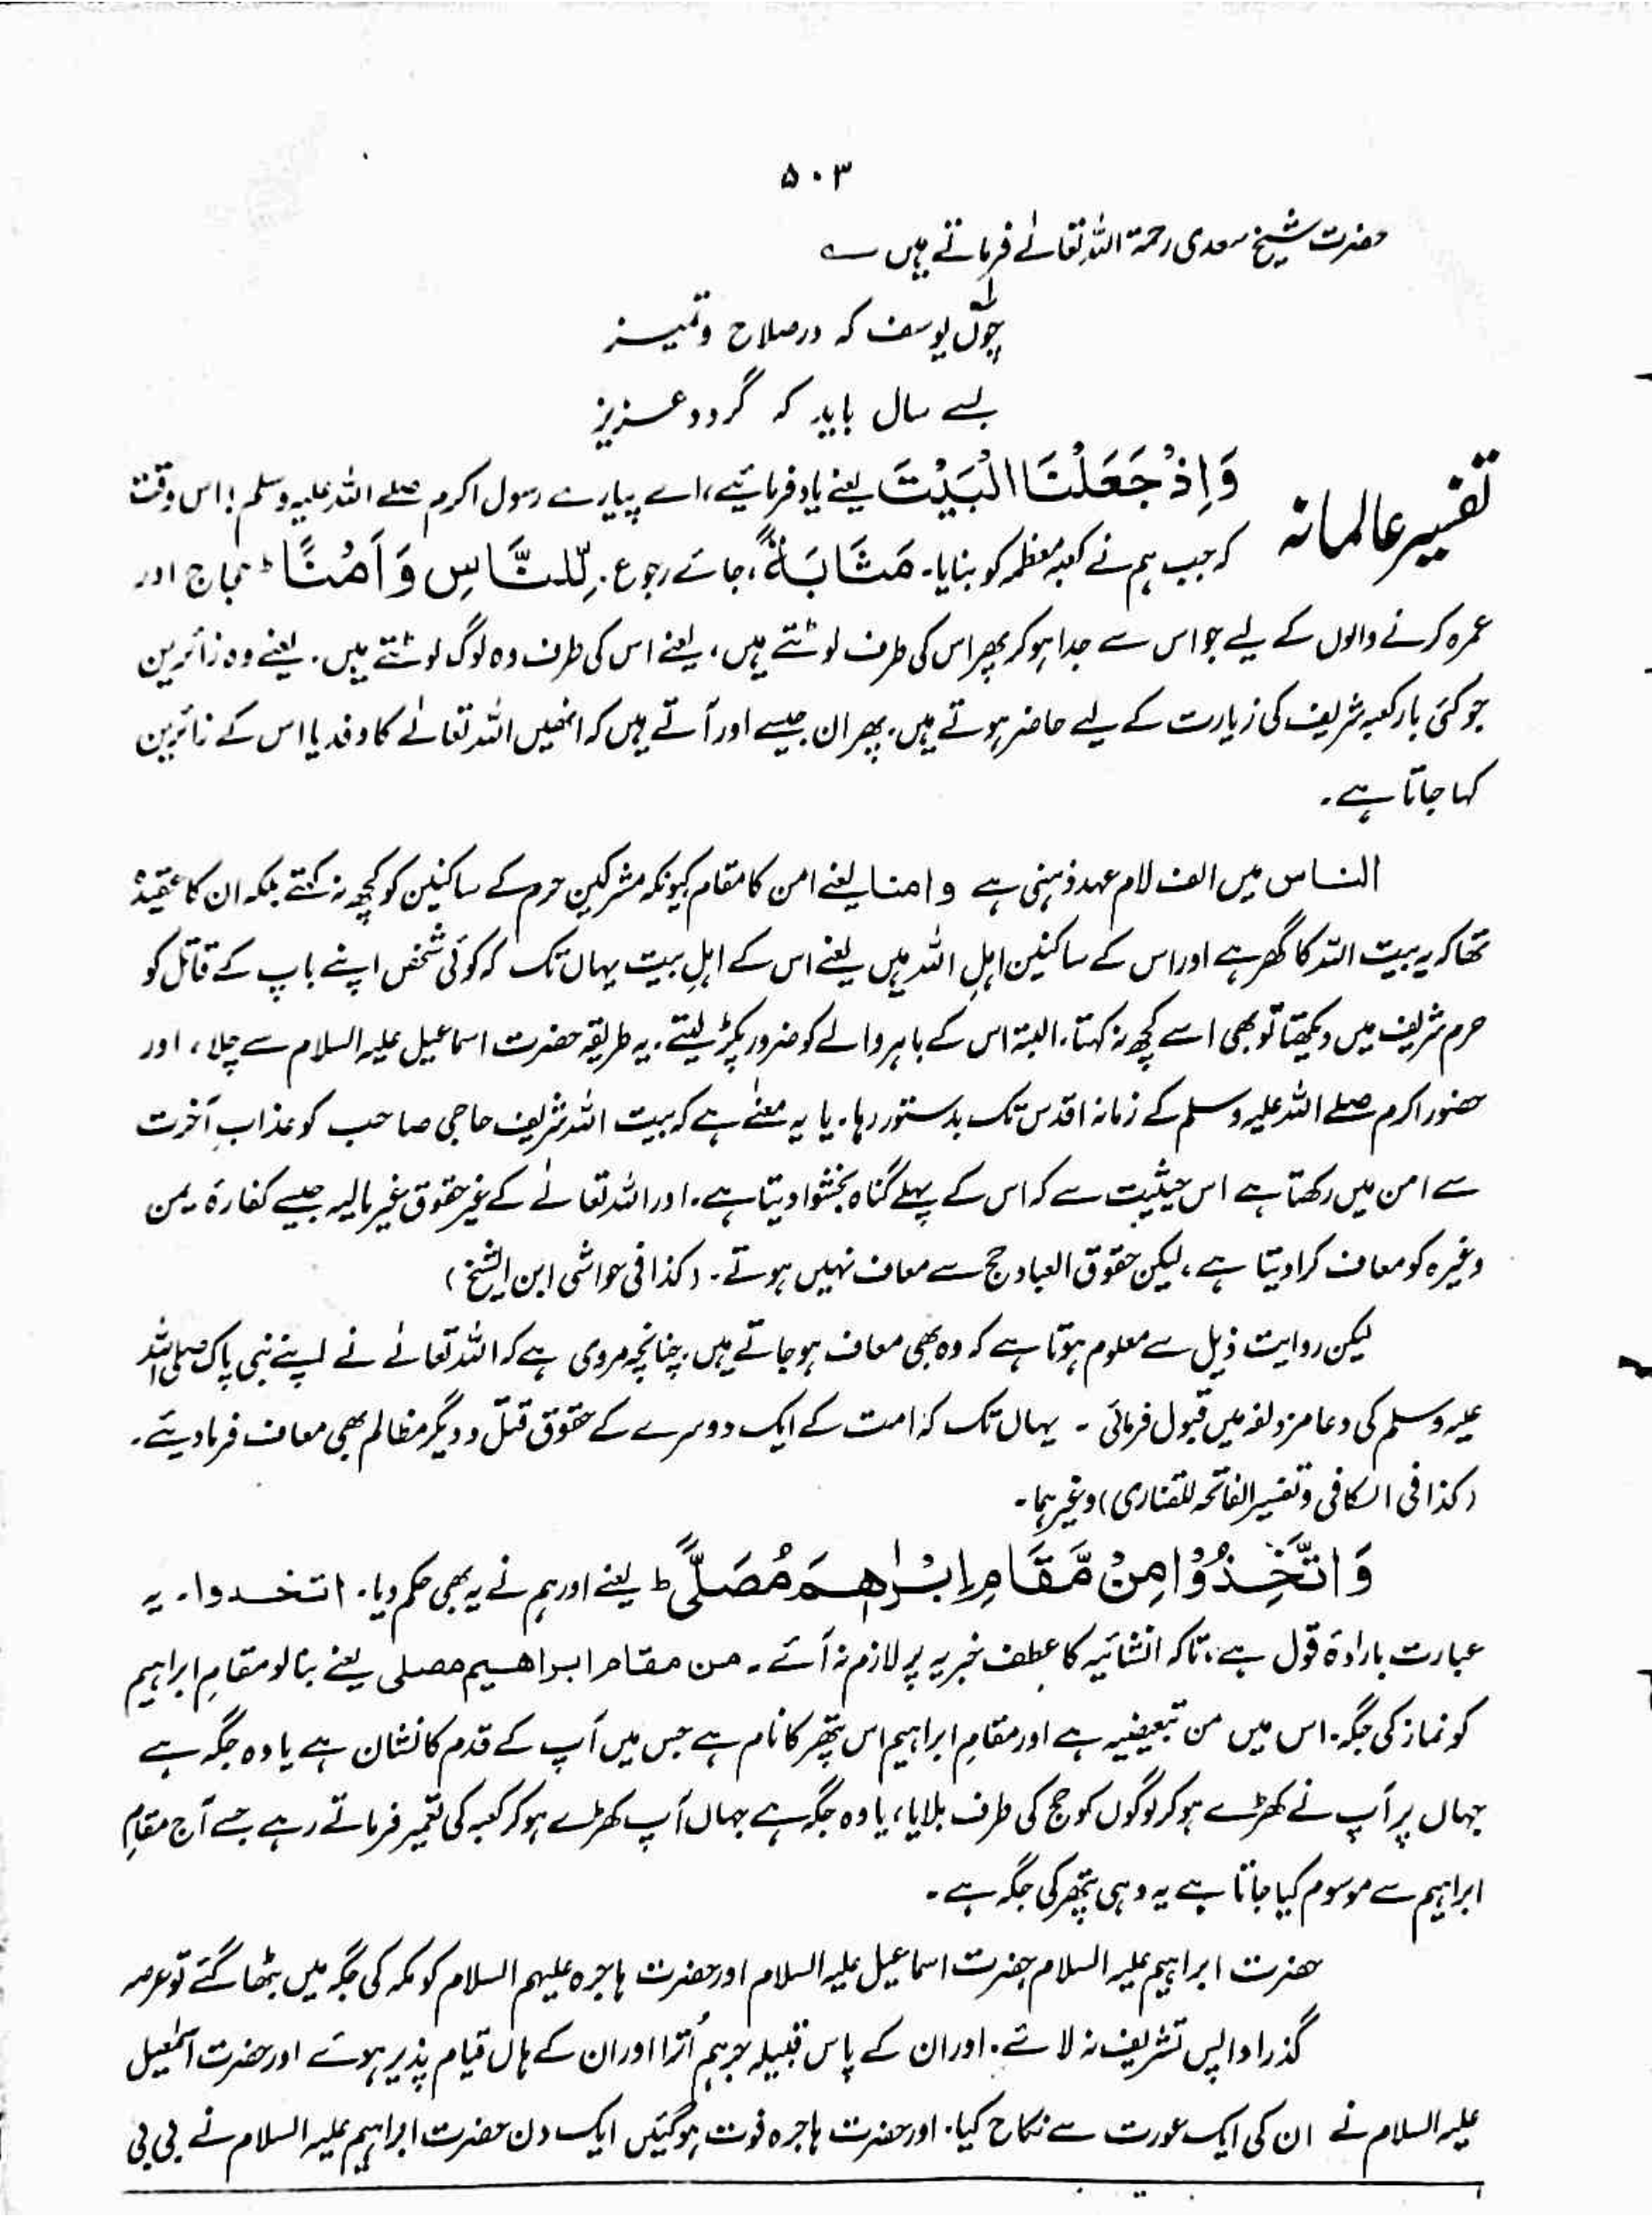 ۵۰۳
حضرت شیخ سعدی رحمۃ اللہ تعالٰے فرماتے ہیں ؎
چوں یوسف کہ در صلاح و تمیز
بسے سال باید کہ گردد عزیز
تفسیر عالمانہ
وَاِذْ جَعَلْنَا الْبَيْتَ یعنے یاد فرمائیے، اے پیارے رسول اکرم صلے اللہ علیہ وسلم! اس وقت
کہ جب ہم نے کعبہ معظمہ کو بنایا۔ مَثَابَةً، جائے رجوع۔ لِّلنَّاسِ وَ اَمْنًا ط حجاج اور
عمرہ کرنے والوں کے لیے جو اس سے جدا ہو کر پھر اس کی طرف لوٹتے ہیں، یعنے اس کی طرف وہ لوگ لوٹتے ہیں۔ یعنے وہ زائرین
جو کئی بار کعبہ شریف کی زیارت کے لیے حاضر ہوتے ہیں۔ پھر ان جیسے اور آتے ہیں کہ انھیں اللہ تعالٰے کا وفد یا اس کے زائرین
کہا جاتا ہے۔
الناس میں الف لام عہد ذہنی ہے و امنا یعنے امن کا مقام کیونکہ مشرکین حرم کے ساکنین کو کچھ نہ کہتے بلکہ ان کا عقیدہ
تھا کہ یہ بیت اللہ کا گھر ہے اور اس کے ساکنین اہل اللہ ہیں یعنے اس کے اہلِ بیت یہاں تک کہ کوئی شخص اپنے باپ کے قاتل کو
حرم شریف میں دیکھتا تو بھی اسے کچھ نہ کہتا، البتہ اس کے باہر والے کو ضرور پکڑ لیتے۔ یہ طریقہ حضرت اسماعیل علیہ السلام سے چلا، اور
حضور اکرم صلے اللہ علیہ وسلم کے زمانہ اقدس تک بدستور رہا۔ یا یہ معنٰے ہے کہ بیت اللہ شریف حاجی صاحب کو عذابِ آخرت
سے امن میں رکھتا ہے اس حیثیت سے کہ اس کے پہلے گناہ بخشوا دیتا ہے۔ اور اللہ تعالٰے کے غیر حقوق غیر مالیہ جیسے کفارۂ یمین
وغیرہ کو معاف کرا دیتا ہے، لیکن حقوق العباد حج سے معاف نہیں ہوتے۔ (کذا فی حواشی ابن الشیخ)
لیکن روایت ذیل سے معلوم ہوتا ہے کہ وہ بھی معاف ہو جاتے ہیں۔ چنانچہ مروی ہے کہ اللہ تعالٰے نے اپنے نبی پاک صلی اللہ
علیہ وسلم کی دعا مزدلفہ میں قبول فرمائی ۔ یہاں تک کہ امت کے ایک دوسرے کے حقوق قتل و دیگر مظالم بھی معاف فرما دیئے۔
(کذا فی الکافی و تفسیر الفاتحہ للفناری) وغیرہما۔
وَ اتَّخِذُوْا مِنْ مَّقَامِ اِبْرٰهٖمَ مُصَلًّى ط یعنے اور ہم نے یہ بھی حکم دیا۔ اتخدوا۔ یہ
عبارت بارادۂ قول ہے، تاکہ انشائیہ کا عطف خبریہ پر لازم نہ آئے۔ من مقام ابراھیم مصلی یعنے بنا لو مقامِ ابراہیم
کو نماز کی جگہ۔ اس میں من تبعیضیہ ہے اور مقامِ ابراہیم اس پتھر کا نام ہے جس میں آپ کے قدم کا نشان ہے یا وہ جگہ ہے
جہاں پر آپ نے کھڑے ہو کر لوگوں کو حج کی طرف بلایا، یا وہ جگہ ہے جہاں آپ کھڑے ہو کر کعبہ کی تعمیر فرماتے رہے جسے آج مقامِ
ابراہیم سے موسوم کیا جاتا ہے یہ وہی پتھر کی جگہ ہے۔
حضرت ابراہیم علیہ السلام حضرت اسماعیل علیہ السلام اور حضرت ہاجرہ علیہم السلام کو مکہ کی جگہ میں بٹھا گئے تو عرصہ
گذرا واپس تشریف نہ لائے۔ اور ان کے پاس قبیلہ جرہم اُترا اور ان کے ہاں قیام پذیر ہوئے اور حضرت اسمٰعیل
علیہ السلام نے ان کی ایک عورت سے نکاح کیا۔ اور حضرت ہاجرہ فوت ہوگئیں ایک دن حضرت ابراہیم علیہ السلام نے بی بی